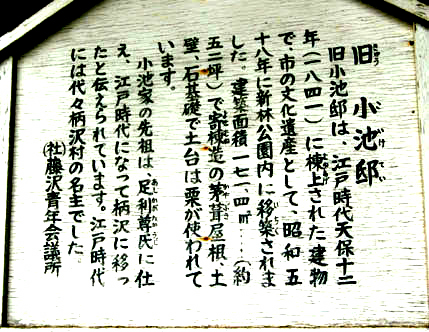 旧 小池邸
旧小池邸は、江戸時代天保十二
年(一八四一)に棟上された建物
で、市の文化遺産として、昭和五
十八年に新林公園内に移築されま
した。建築面積一七一、四㎡……(約
五二坪)で客棟造の茅葺屋根、土
壁、石基礎で土台は栗が使われて
います。
小池家の先祖は、足利尊氏に仕
え、江戸時代になって柄沢に移っ
たと伝えられています。江戸時代
には代々柄沢村の名主でした。
㈳藤沢青年会議所